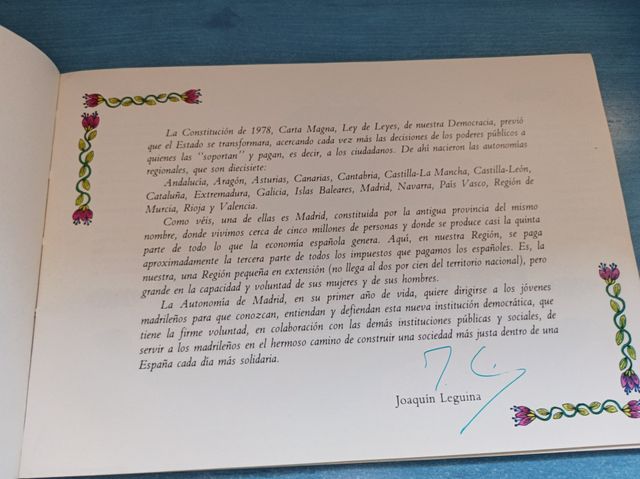 La Constitución de 1978, Carta Magna, Ley de Leyes, de nuestra Democracia, previó
que el Estado se transformara, acercando cada vez más las decisiones de los poderes públicos a
quienes las "soportan" y pagan, es decir, a los ciudadanos. De ahí nacieron las autonomías
regionales, que son diecisiete:
Andalucía, Aragón, Asturias, Canarias, Cantabria, Castilla-La Mancha, Castilla-León,
Cataluña, Extremadura, Galicia, Islas Baleares, Madrid, Navarra, País Vasco, Región de
Murcia, Rioja y Valencia.
Como véis, una de ellas es Madrid, constituida por la antigua provincia del mismo
nombre, donde vivimos cerca de cinco millones de personas y donde se produce casi la quinta
parte de todo lo que la economía española genera. Aquí, en nuestra Región, se paga
aproximadamente la tercera parte de todos los impuestos que pagamos los españoles. Es, la
nuestra, una Región pequeña en extensión (no llega al dos por cien del territorio nacional), pero
grande en la capacidad y voluntad de sus mujeres y de sus hombres.
La Autonomía de Madrid, en su primer año de vida, quiere dirigirse a los jóvenes
madrileños para que conozcan, entiendan y defiendan esta nueva institución democrática, que
tiene la firme voluntad, en colaboración con las demás instituciones públicas y sociales, de
servir a los madrileños en el hermoso camino de construir una sociedad más justa dentro de una
España cada día más solidaria.
Joaquín Leguina